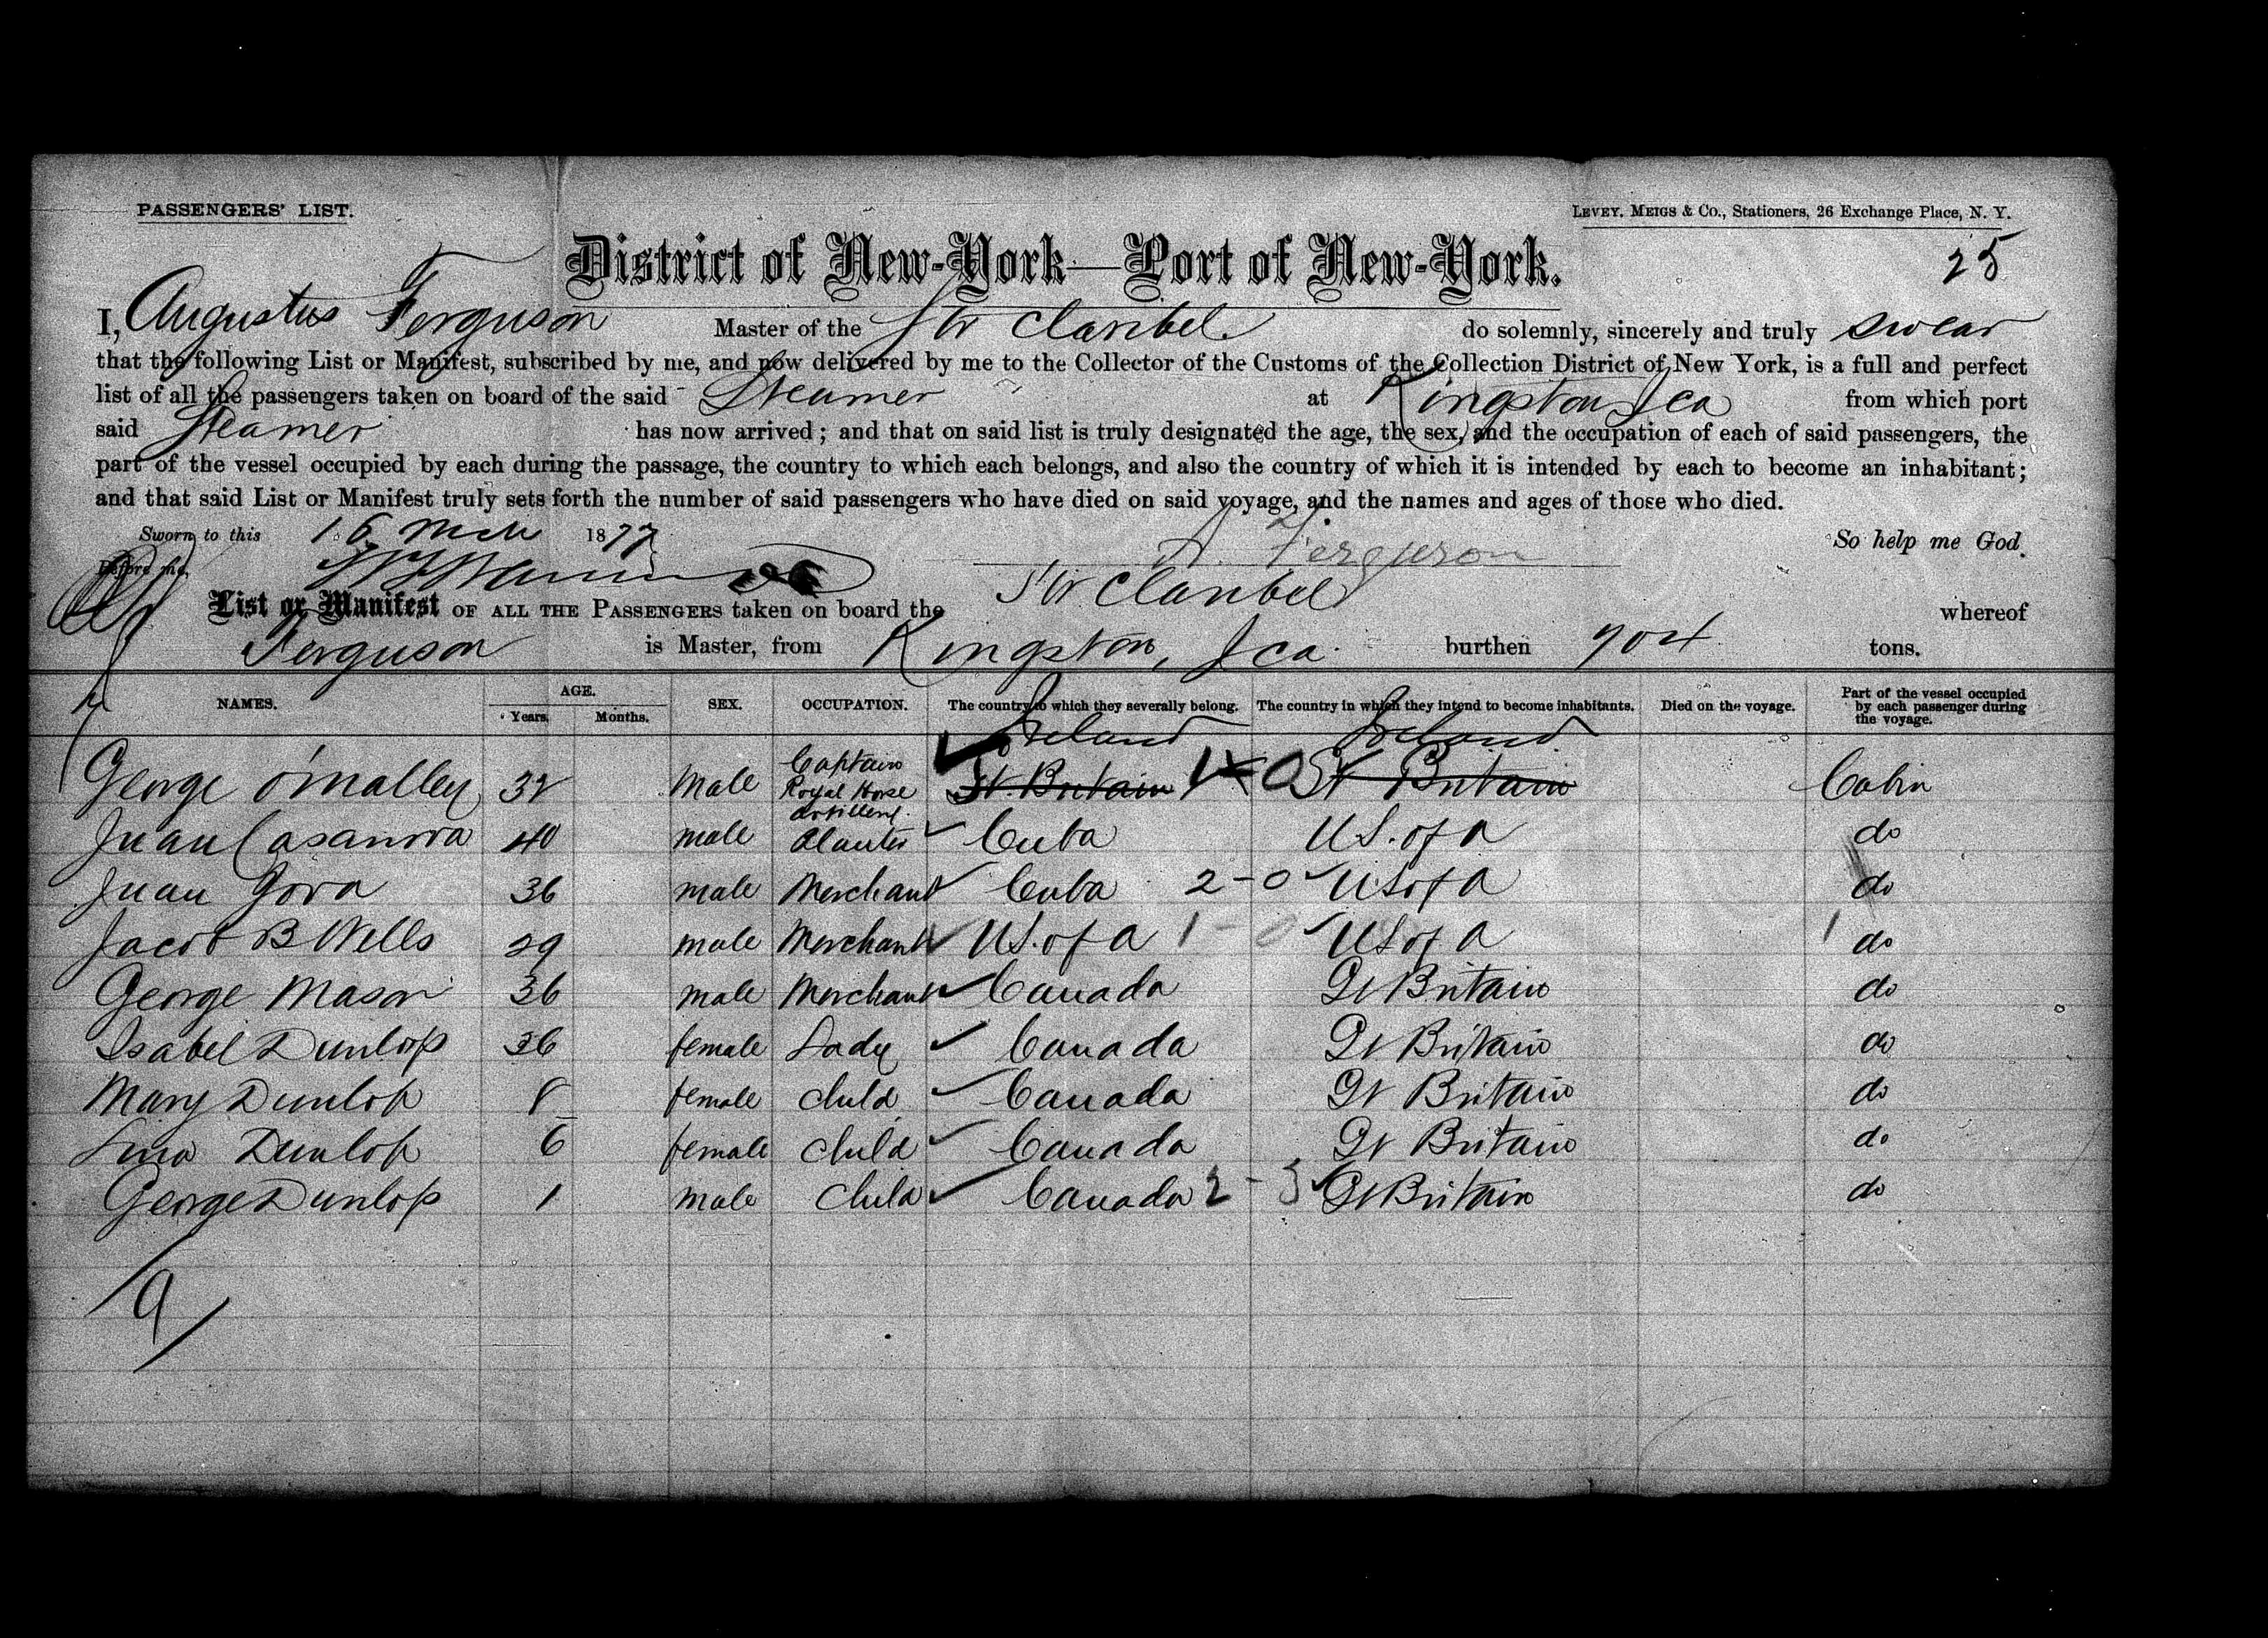 PASSENGERS' LIST.
LEVEY, MEIGS & CO., Stationers, 26 Exchange Place, N. Y.
25
District of New-York—Port of New-York.
I, Augustus Ferguson Master of the Str Claribel do solemnly, sincerely and truly swear
that the following List or Manifest, subscribed by me, and now delivered by me to the Collector of the Customs of the Collection District of New York, is a full and perfect
list of all the passengers taken on board of the said Steamer at Kingston Jca from which port
said Steamer has now arrived; and that on said list is truly designated the age, the sex, and the occupation of each of said passengers, the
part of the vessel occupied by each during the passage, the country to which each belongs, and also the country of which it is intended by each to become an inhabitant;
and that said List or Manifest truly sets forth the number of said passengers who have died on said voyage, and the names and ages of those who died.
Sworn to this 16 Mch 1877 So help me God.
Before me, A. Ferguson
List or Manifest OF ALL THE PASSENGERS taken on board the Str Claribel whereof
Ferguson is Master, from Kingston, Jca burthen 904 tons.
NAMES. AGE. Years. Months. SEX. OCCUPATION. The country to which they severally belong. The country in which they intend to become inhabitants. Died on the voyage. Part of the vessel occupied by each passenger during the voyage.
Ireland Ireland
George O'Malley 32 Male Captain Royal Horse Artillery. Gt. Britain 1-0 Gt Britain Cabin
Juan Casanova 40 male Planter Cuba U S. of A do
Juan Gova 36 male Merchant Cuba 2-0 U S of A do
Jacob B Wells 29 male Merchant U S. of A 1-0 U S of A 1 do
George Mason 36 male Merchant Canada Gt Britain do
Isabel Dunlop 36 female Lady Canada Gt Britain do
Mary Dunlop 8 female child Canada Gt Britain do
Dunlop 6 female child Canada Gt Britain do
George Dunlop 1 male child Canada 2-3 Gt Britain do
9